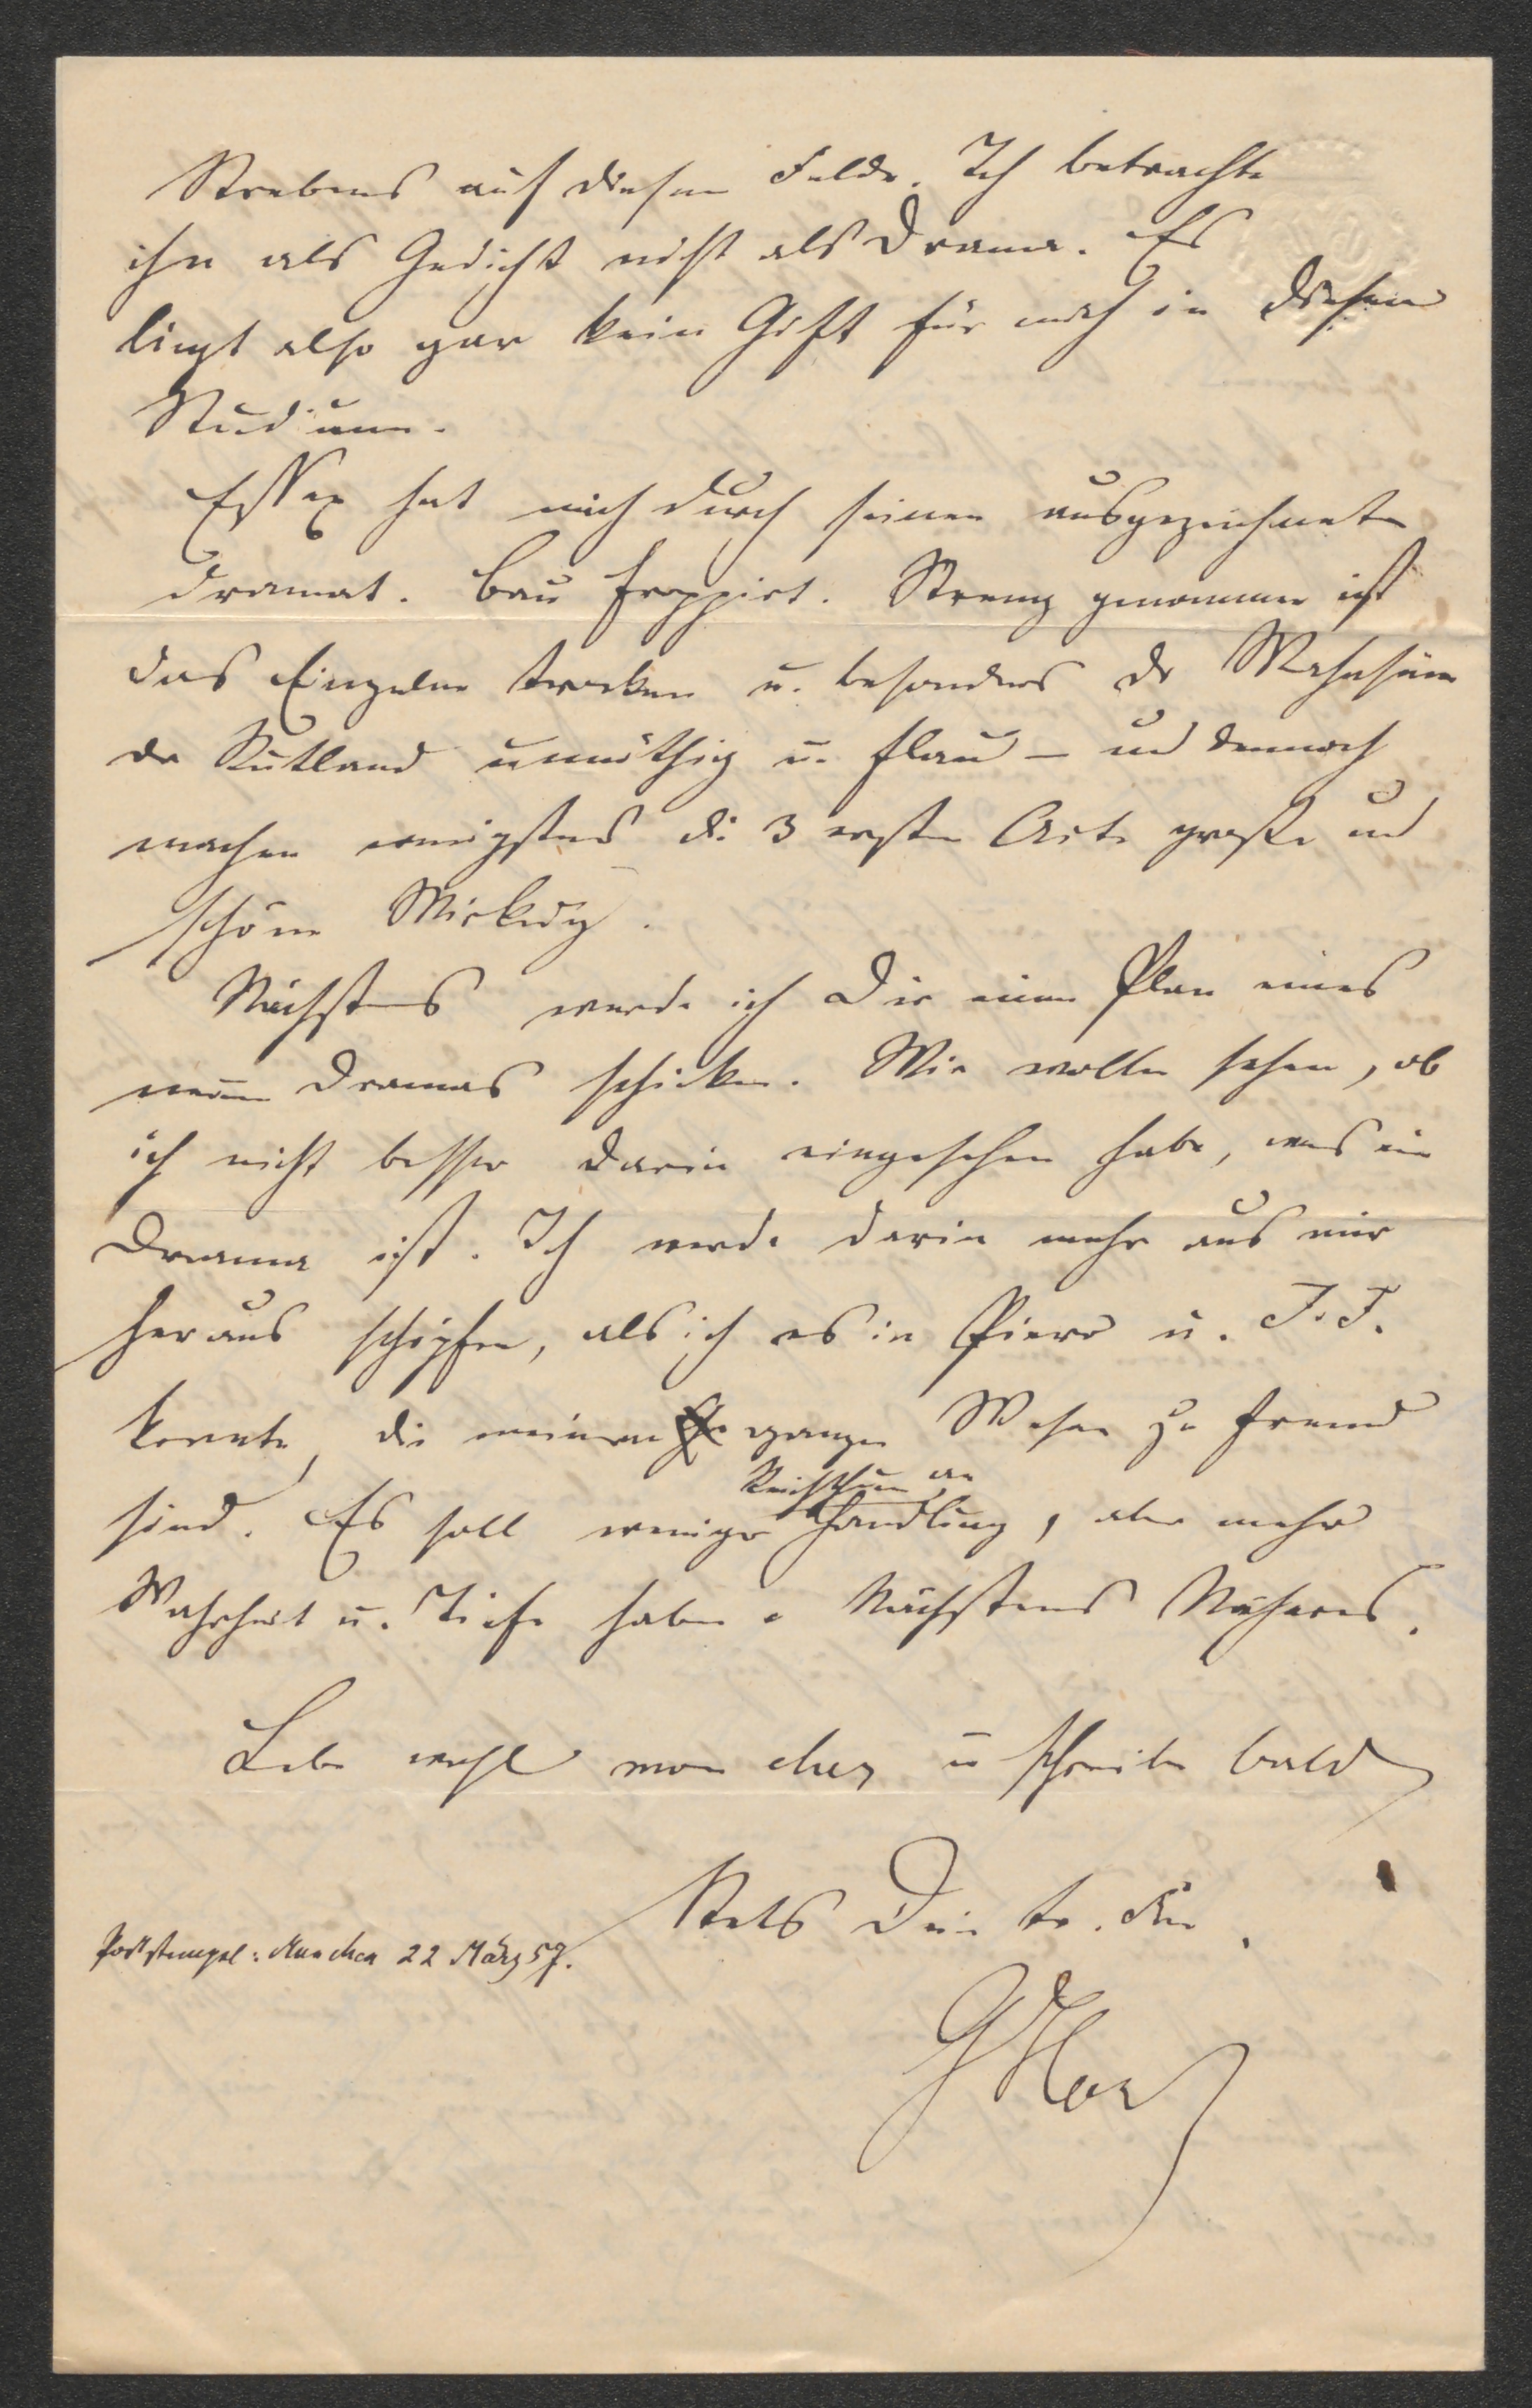 Strebens auf diesem Felde. Ich betrachte
ihn als Gedicht nicht als Drama. Es
liegt also gar kein Gift für mich in diesem
Studium.
Essex hat mich durch seinen ausgezeichneten
dramat. Bau frappirt. Streng genommen ist
das Einzelne trocken u. besonders der Wahnsinn
der Rutland unnöthig u. flau – und dennoch
machen wenigstens die 3 ersten Acte große und
schöne Wirkung.
Nächstens werde ich Dir einen Plan eines
neuen Dramas schicken. Wir wollen sehen, ob
ich nicht besser darin eingesehen habe, was ein
Drama ist. Ich werde darin mehr aus mir
heraus schöpfen, als ich es in Piero u. F. F.
konnte, die meinem ganzen Wesen zu fremd
sind. Es soll weniger Reichthum an Handlung, aber mehr
Wahrheit u. Tiefe haben. Nächstens Näheres.
Lebe wohl mon cher u schreibe bald
Stets Dein tr.
Poststempel: Munchen 22 März 57.